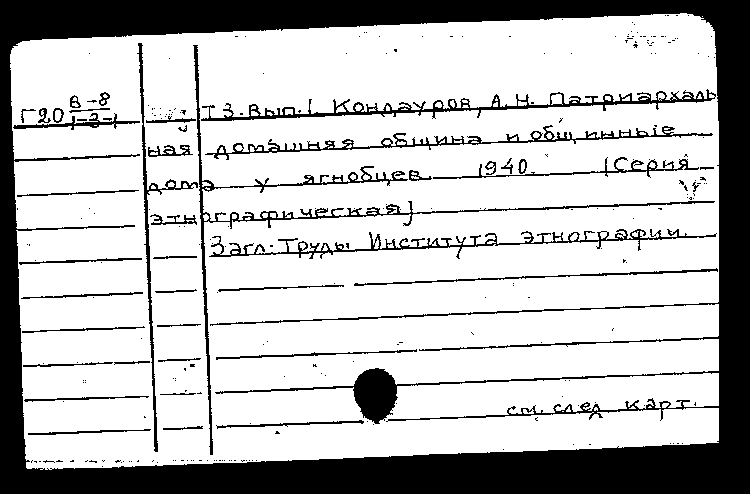 Г20 В-8 Т3. Вып.1. Кондауров, А.Н. Патриархаль
1-3-1
ная домашняя община и общинные
дома у ягнобцев. 1940. [Серия
этнографическая]
Загл: Труды Института этнографии.
см. след карт.